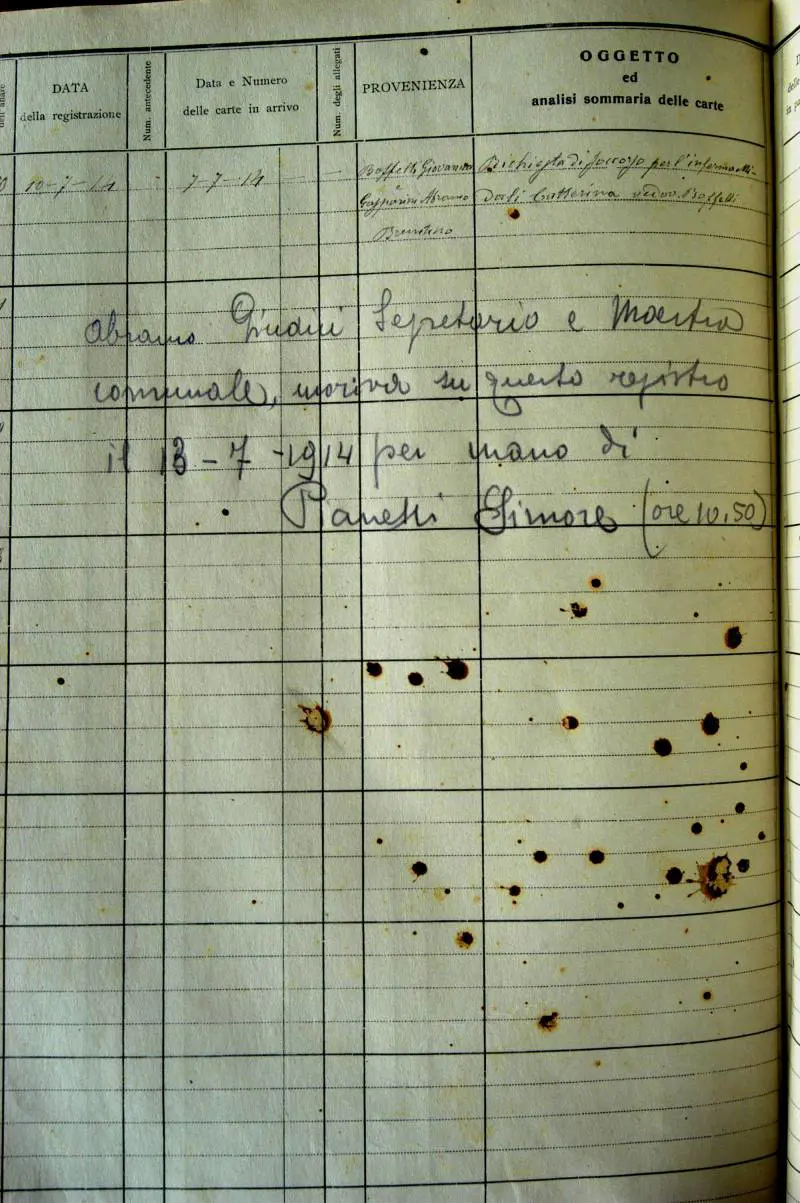 DATA
della registrazione
Num. antecedente
Data e Numero
delle carte in arrivo
Num. degli allegati
PROVENIENZA
OGGETTO
ed
analisi sommaria delle carte
10-7-14
7-7-14
Boffelli Giovanni
e
Gasparini Abramo
Richiesta di soccorso per l'inferma Mi-
dali Catterina vedov. Boffelli
Abramo Giudici Segretario e Maestro
comunale, moriva su questo registro
il 13-7-1914 per mano di
Pianetti Simone (ore 10.50)